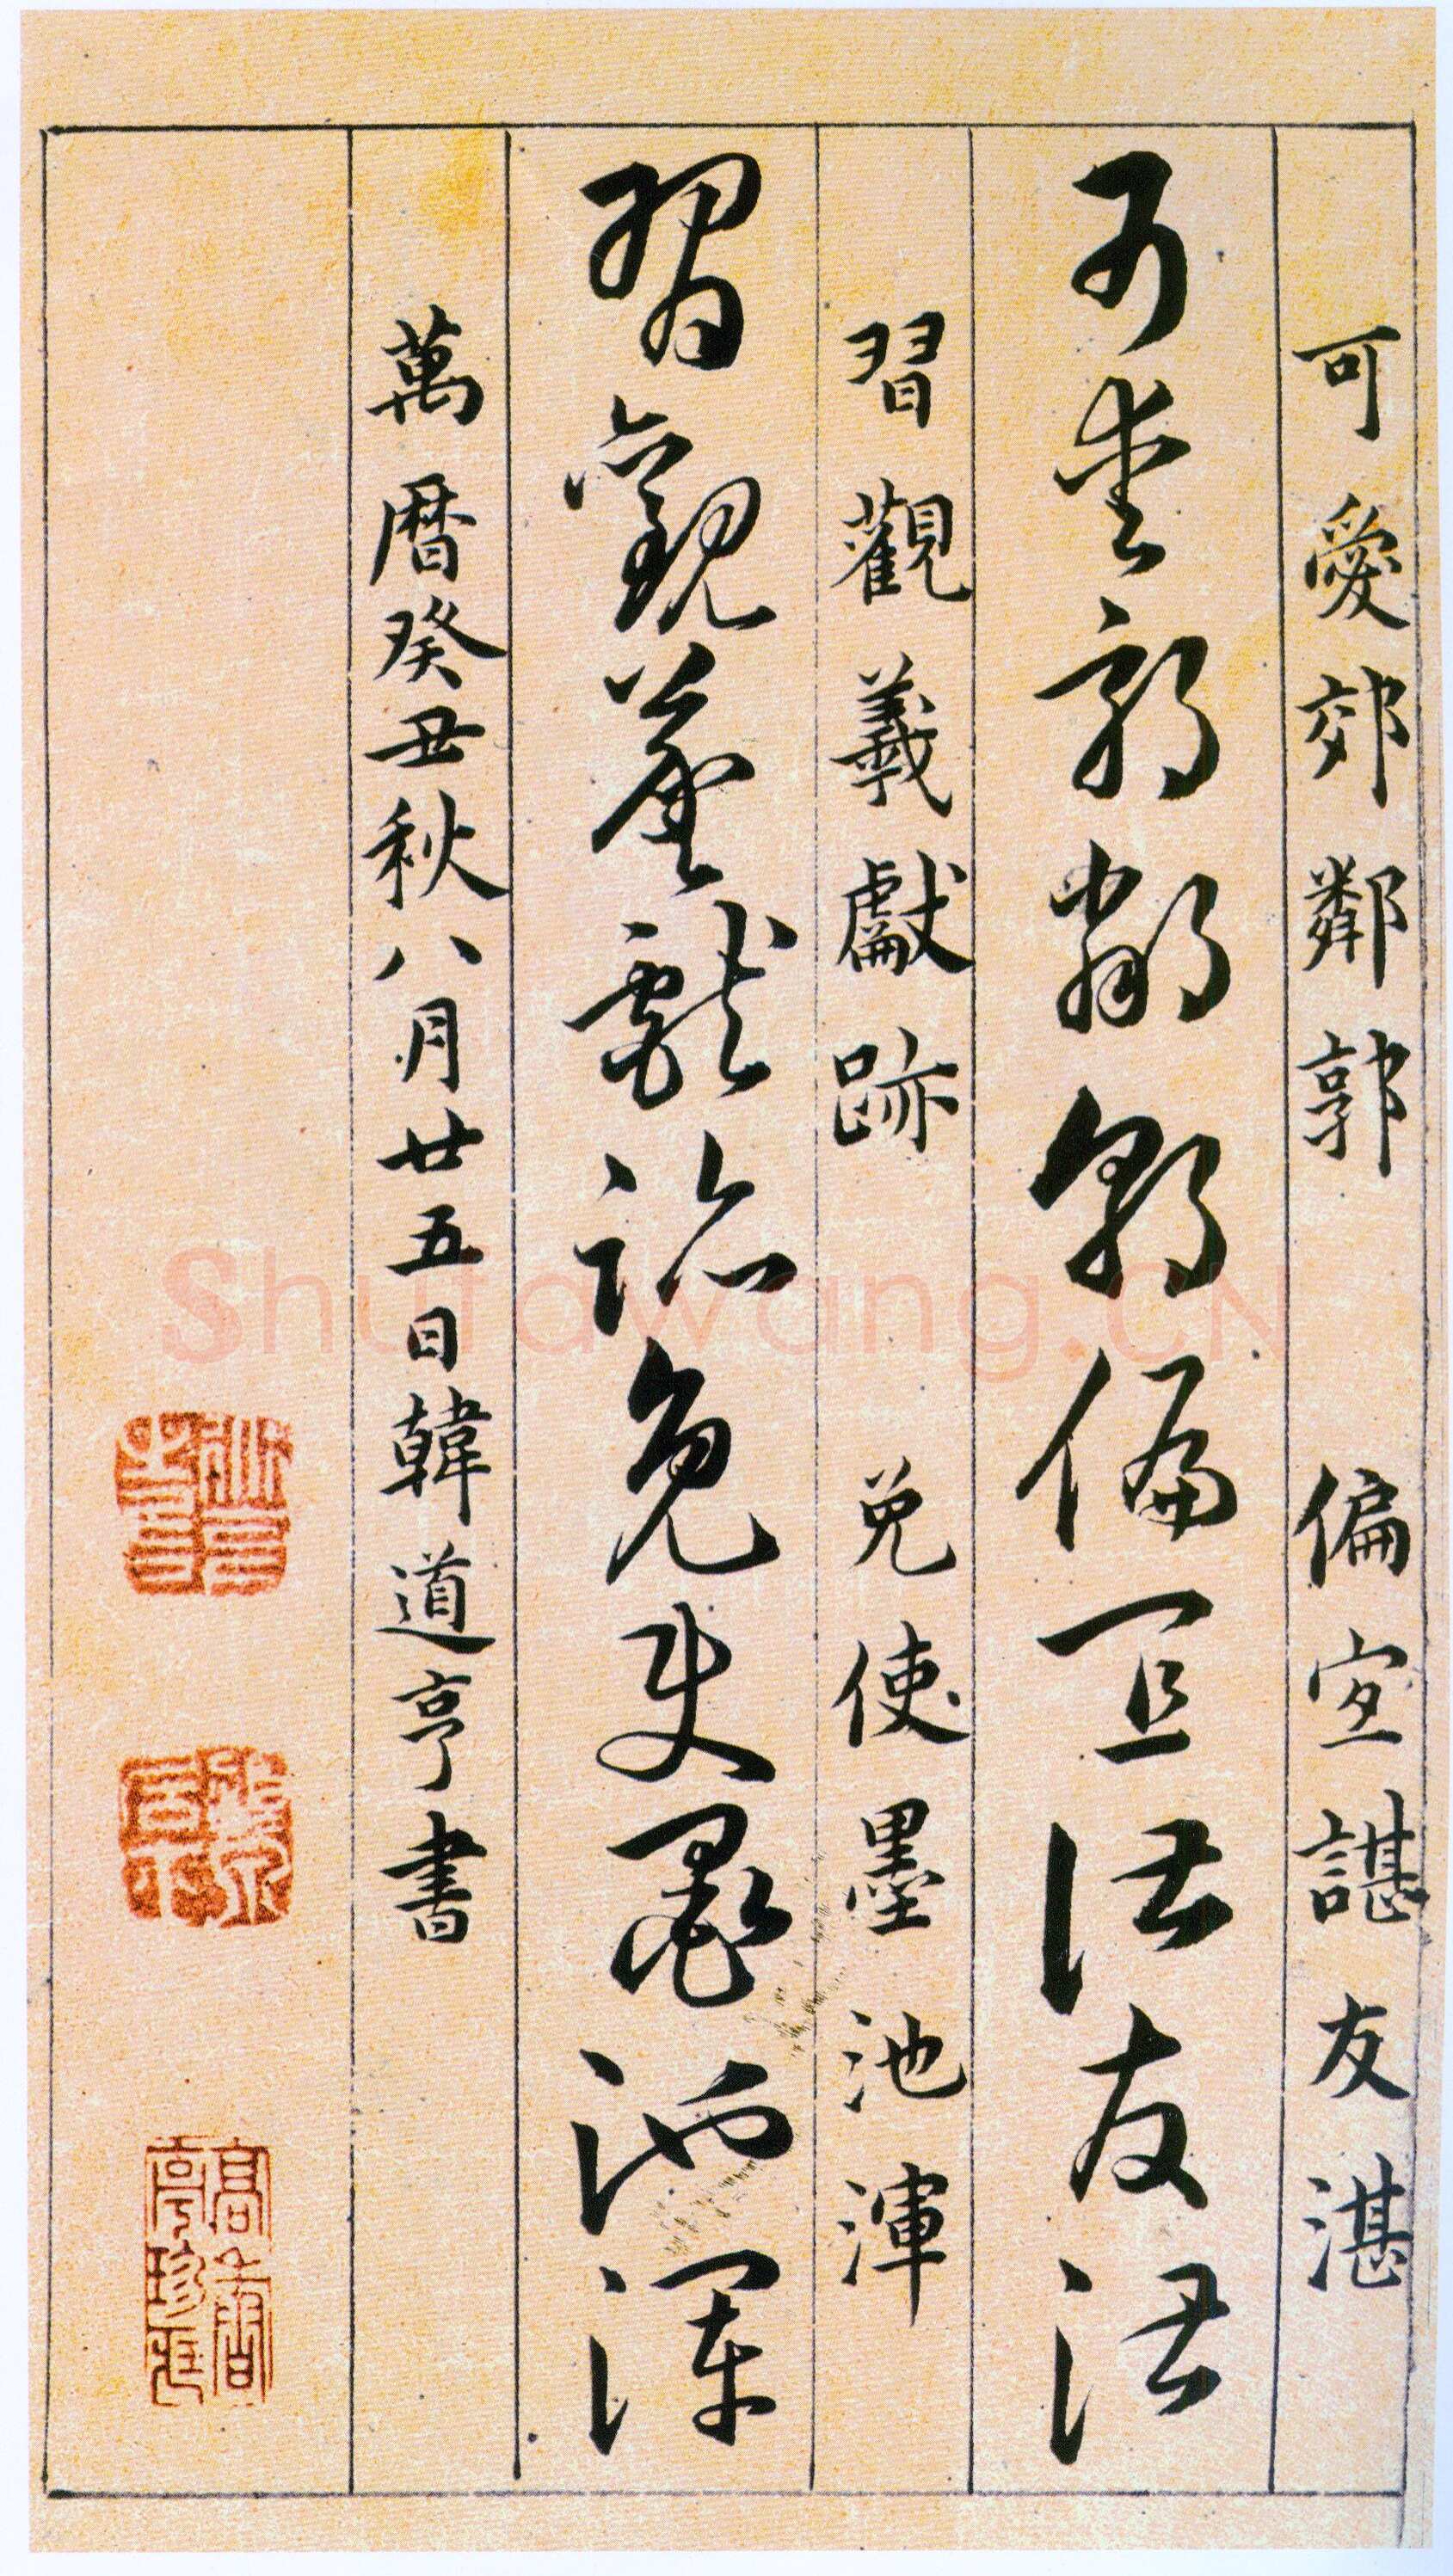 可愛郊鄰郭 偏宜諶友湛
可愛郊鄰郭偏宜諶友湛
習觀羲獻跡 免使墨池渾
習觀羲獻跡免使墨池渾
萬曆癸丑秋八月廿五日韓道亨書
Shufawang.CN